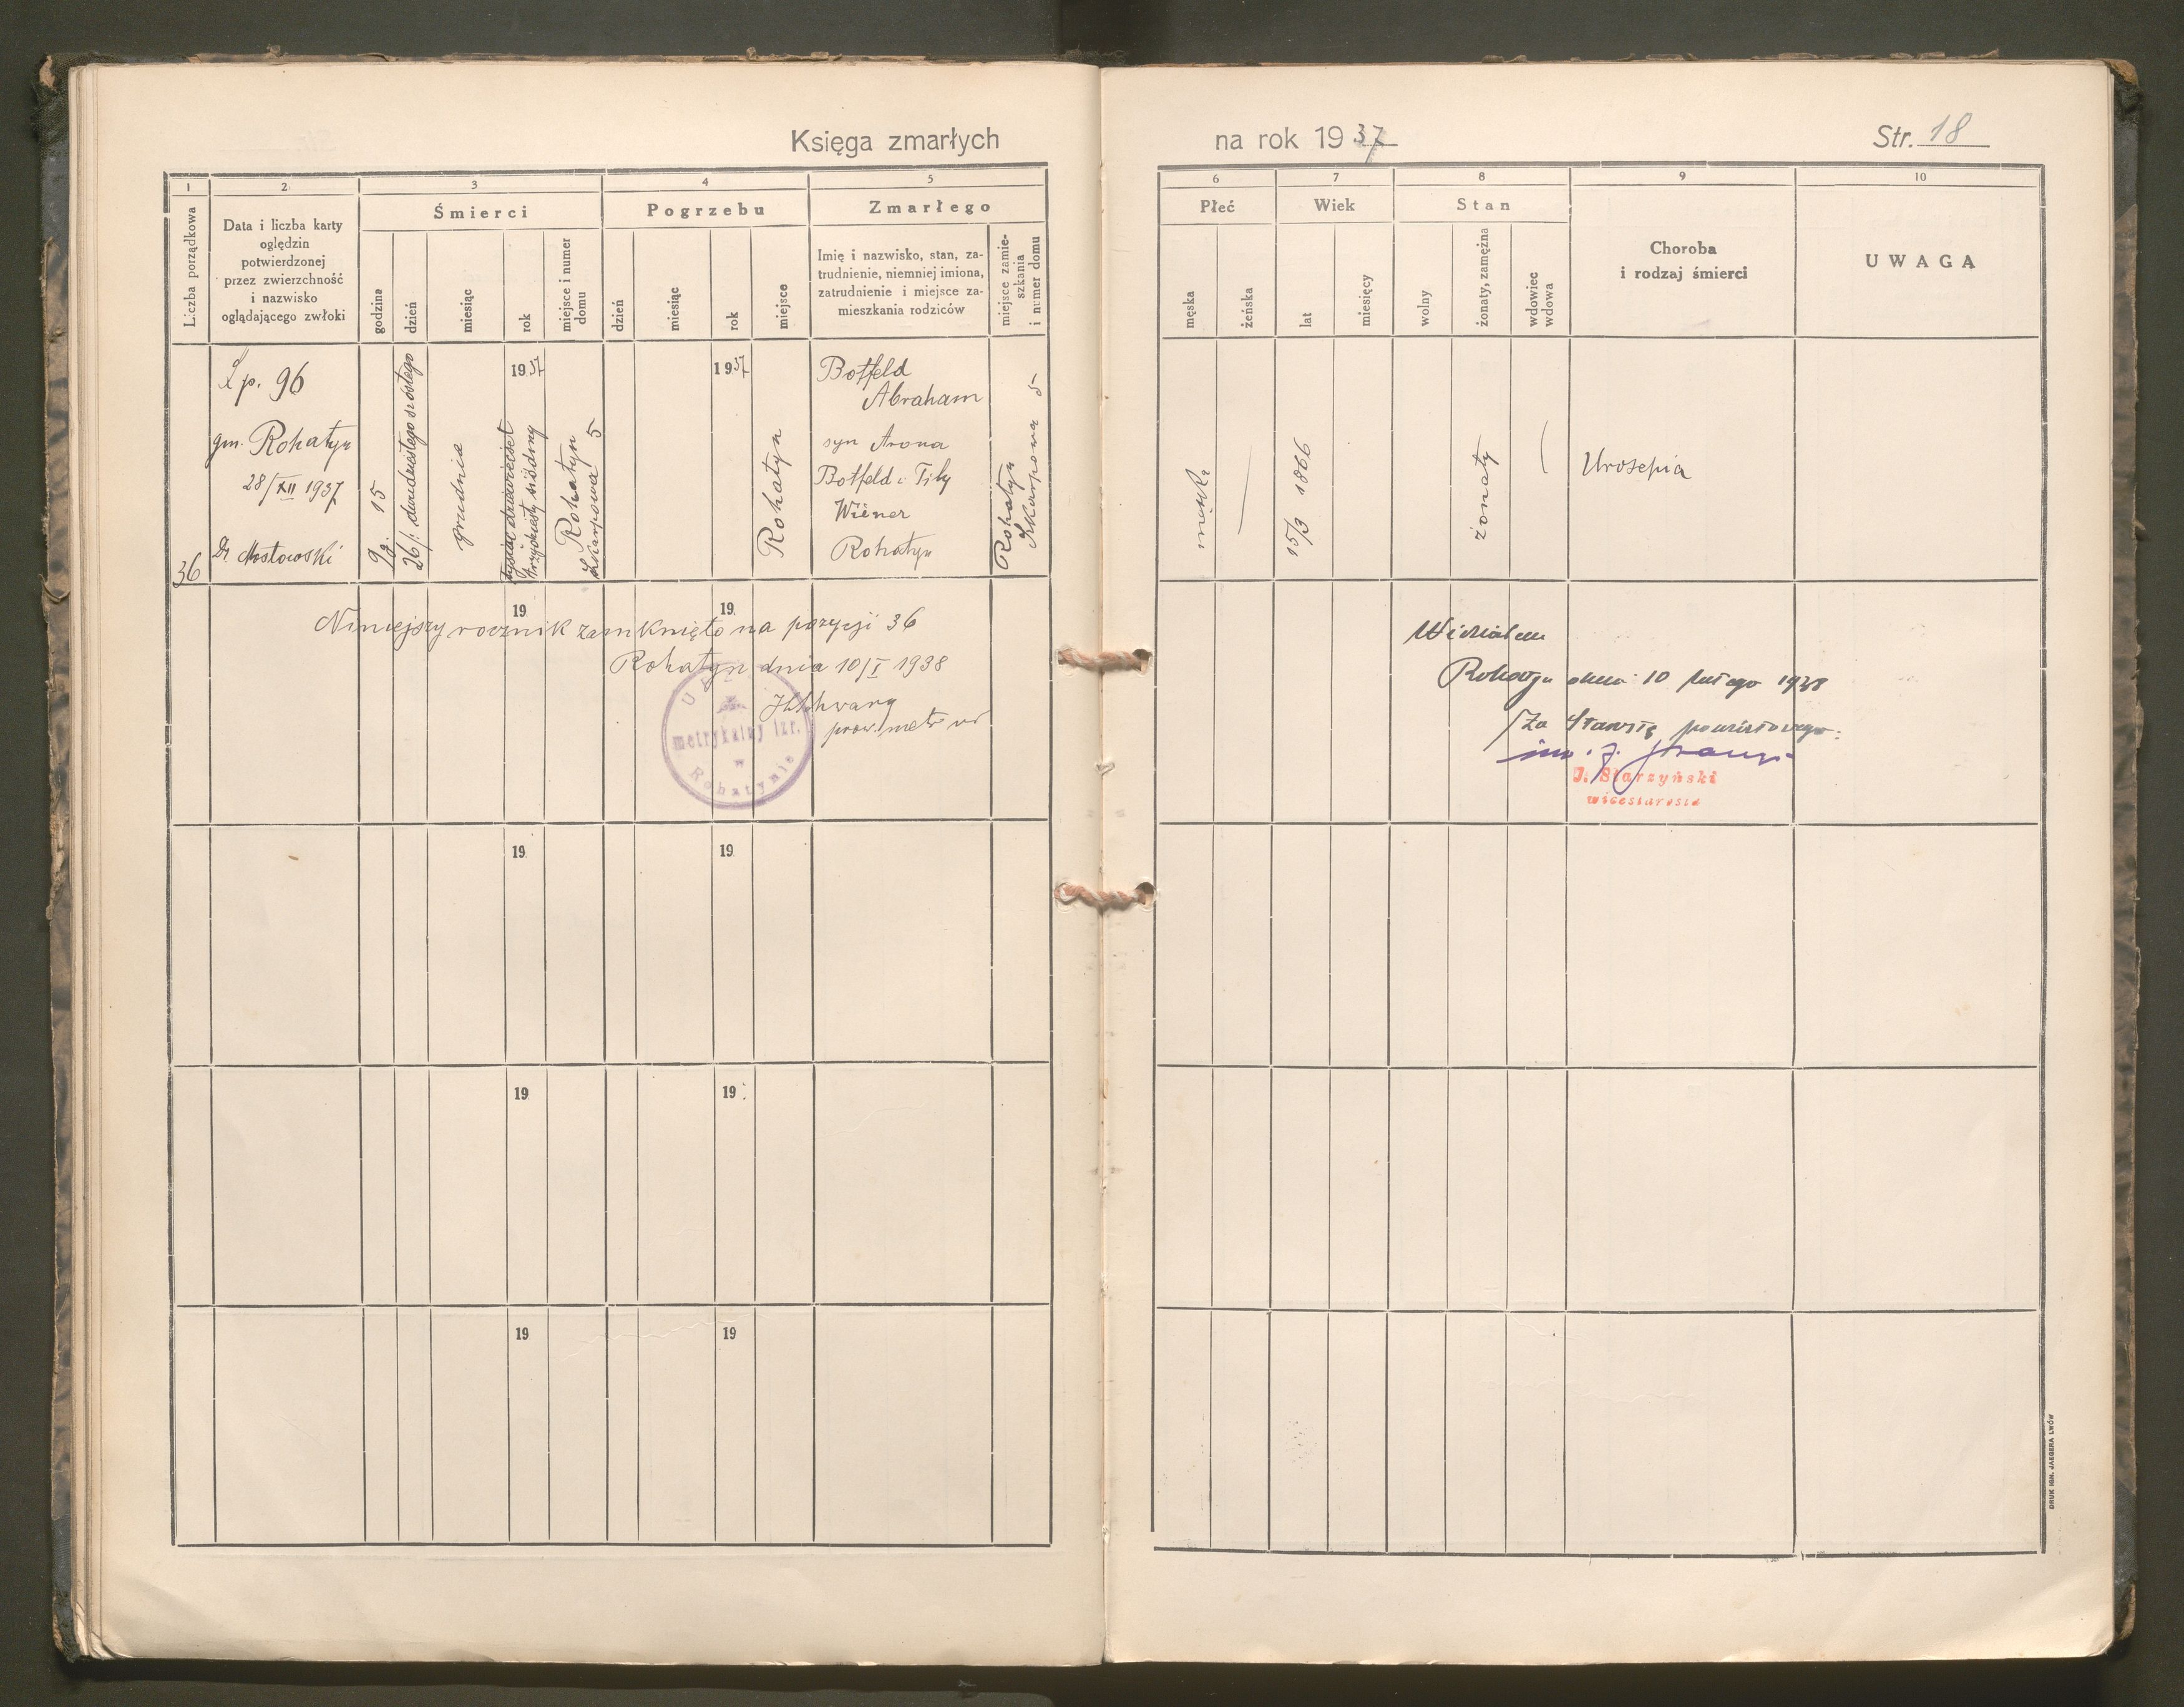 Księga zmarłych
na rok 1937
Str. 18
1
2
3
4
5
Liczba porządkowa
Data i liczba karty
oględzin
potwierdzonej
przez zwierzchność
i nazwisko
oglądającego zwłoki
Śmierci
godzina
dzień
miesiąc
rok
miejsce i numer
domu
Pogrzebu
dzień
miesiąc
rok
miejsce
Zmarłego
Imię i nazwisko, stan, za-
trudnienie, niemniej imiona,
zatrudnienie i miejsce za-
mieszkania rodziców
miejsce zamie-
szkania
i numer domu
6
7
8
9
10
Płeć
męska
żeńska
Wiek
lat
miesięcy
Stan
wolny
żonaty, zamężna
wdowiec
wdowa
Choroba
i rodzaj śmierci
UWAGA
36
Lp. 96
gm. Rohatyn
28/XII 1937
Dr. Mostowski
9g. 15
26/: dwudziestego szóstego
grudnia
1937
tysiąc dziewięćset
trzydziesty siódmy
Rohatyn
Skarpowa 5
1937
Rohatyn
Botfeld
Abraham
syn Arona
Botfeld i Tily
Wiener
Rohatyn
Rohatyn
Skarpowa 5
męska
15/3 1866
żonaty
Urosepia
19
19
Niniejszy rocznik zamknięto na pozycji 36
Rohatyn dnia 10/I 1938
prow. metr
metrykalny izr.
w
Rohatynie
Widziałem
Rohatyn dnia 10 lutego 1938
/Za Starostę powiatowego:
J. Starzyński
wicestarosta
19
19
19
19
19
19
DRUK IGN. JAEGERA LWÓW